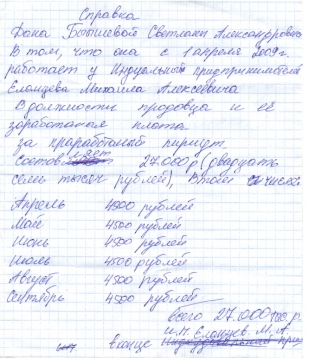 Справка
Дана Батышевой Светлане Александровне
В том, что она с 1 апреля 2009г.
работает у Индуальный предпринимателя
Еланцева Михаила Алексеевича
В должности продовца и её
зоработаная плота
за праработаный пириуд
Состов 27.000 р (двадцать
семь тысяч рублей), Втом числе
Апрель 4500 рублей
Май 4500 рублей
Июнь 4500 рублей
Июль 4500 рублей
Август 4500 рублей
Сентябрь 4500 рублей
всего 27.000 р.
и.п. Еланцев. М. А.